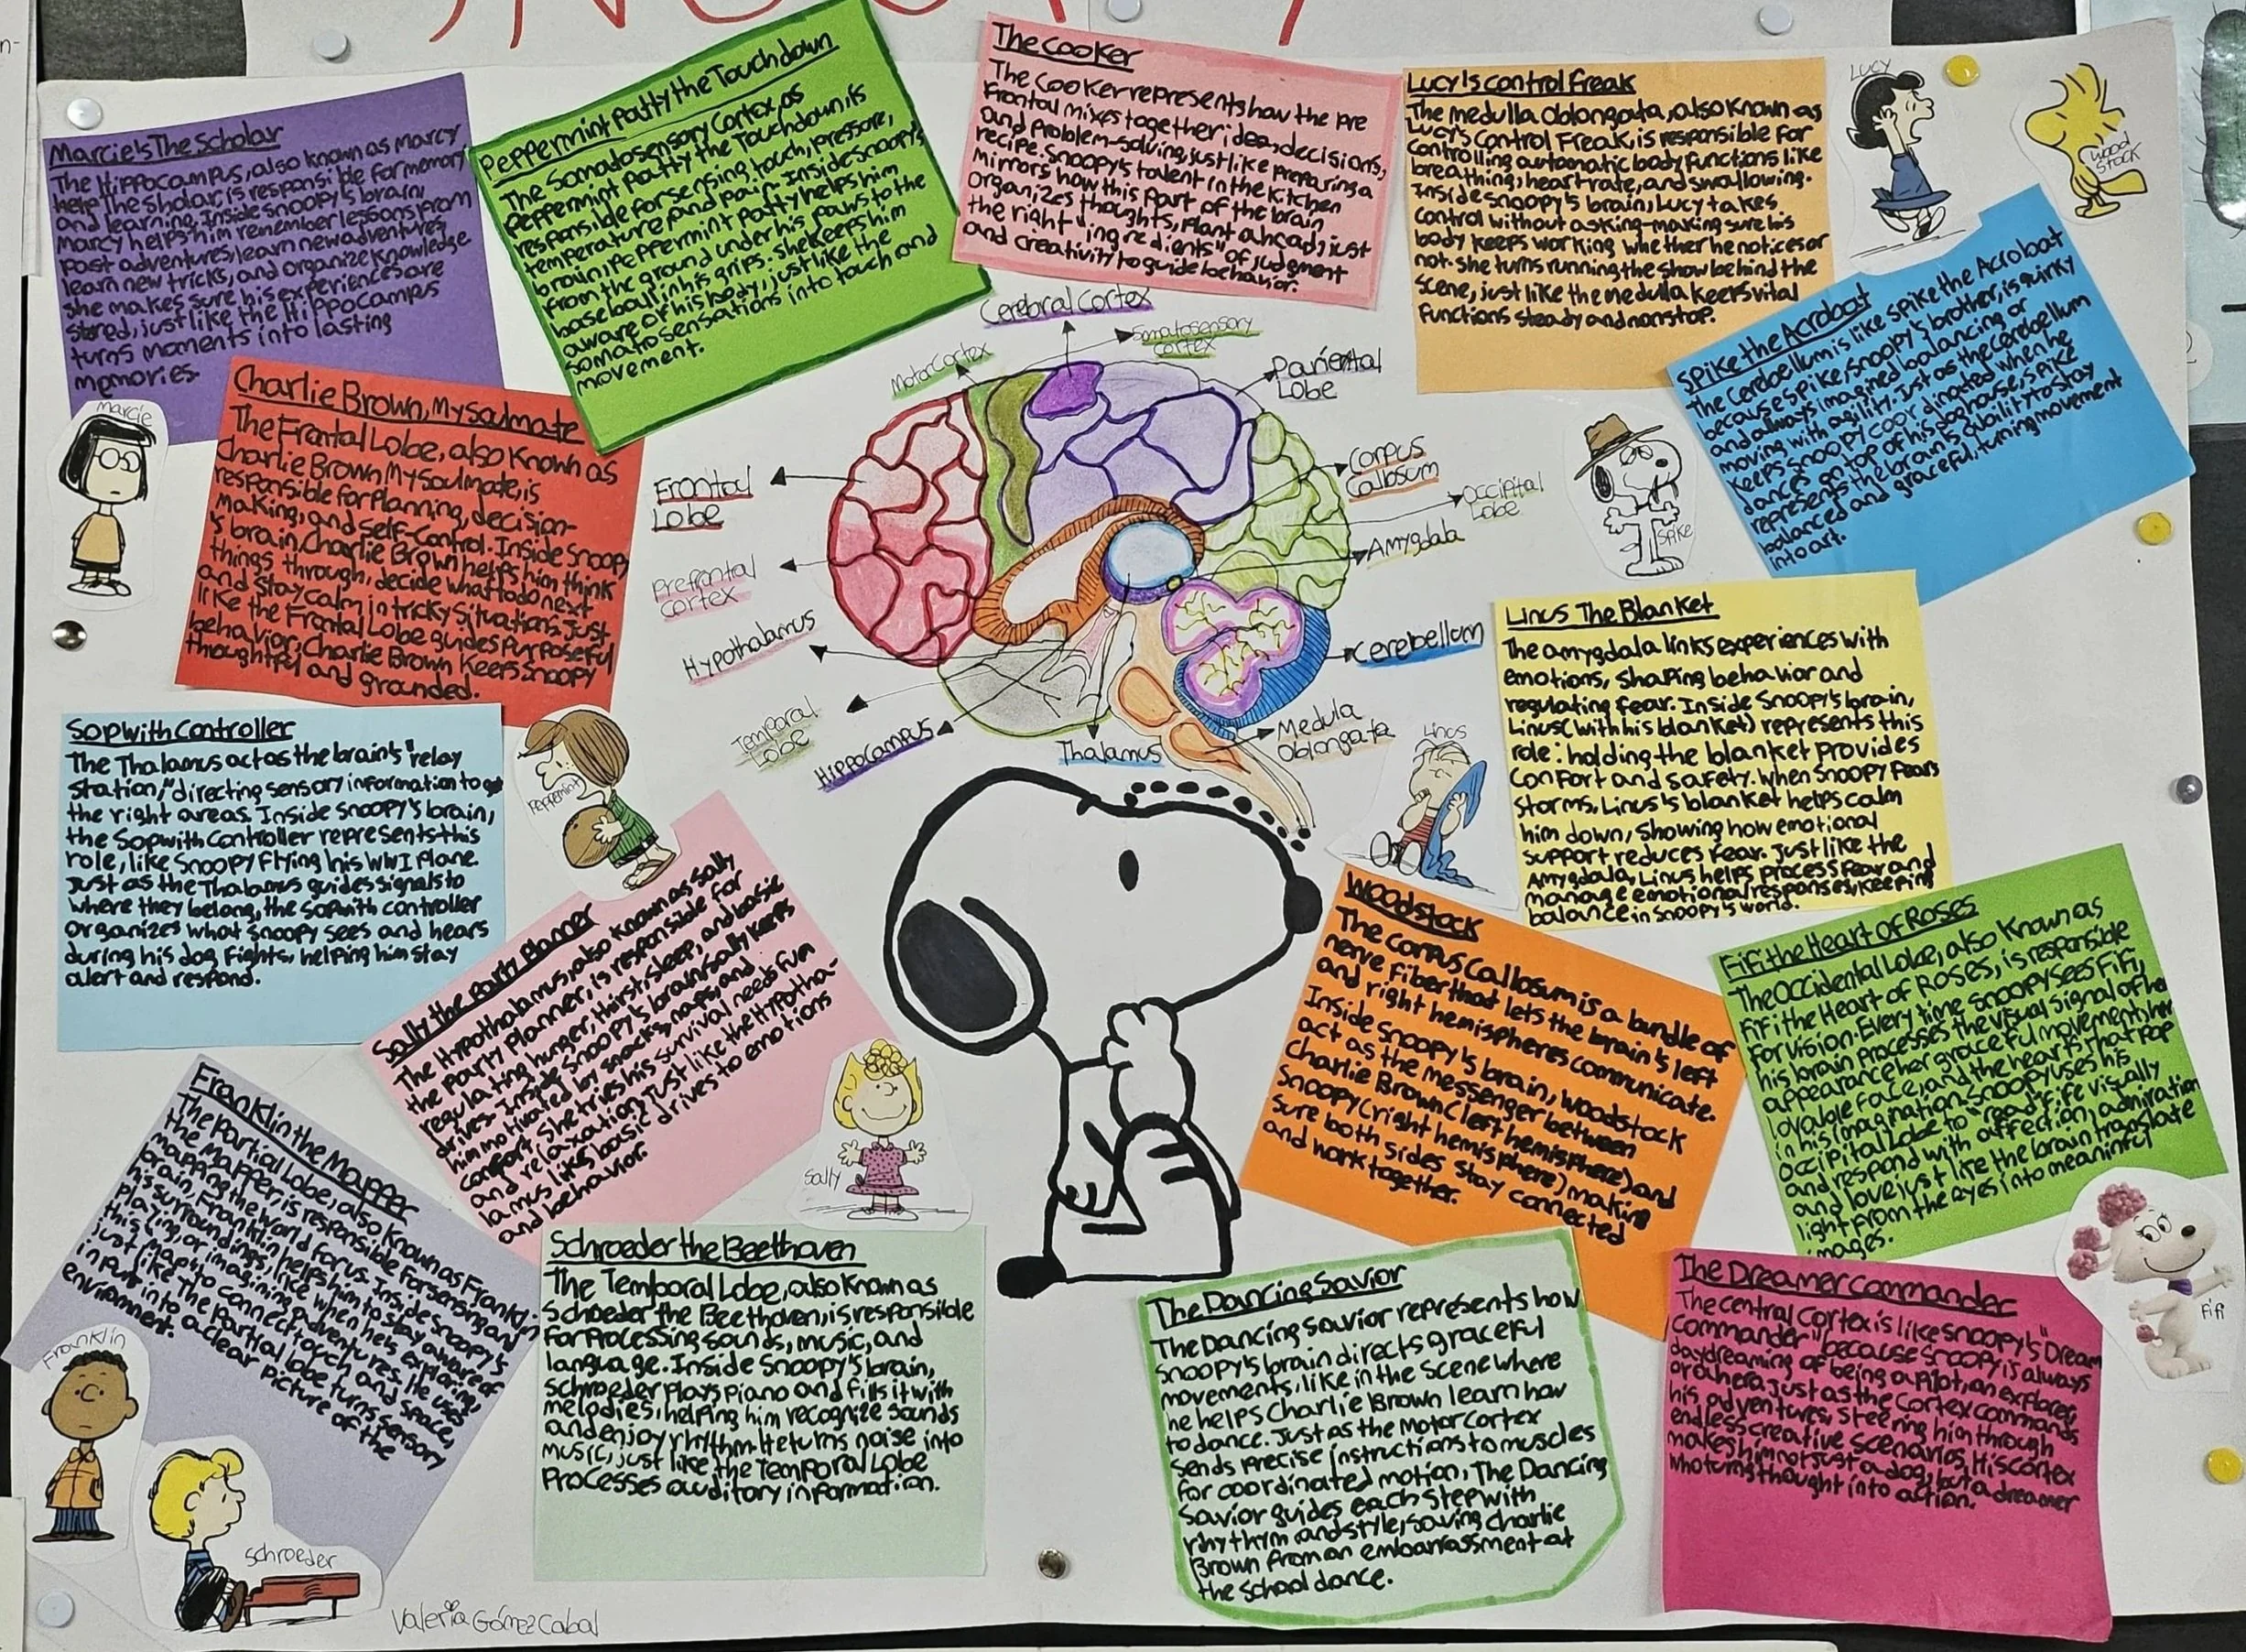 SNOOPY
Marcie's The Scholar
The Hippocampus, also known as Marcy
the sholar is responsible for memory
and learning. Inside snoopy's brain,
Marcy helps him remember lessons from
past adventures, learn new adventures
learn new tricks, and organize knowledge
she makes sure his experiences are
stored, just like the Hippocampus
turns moments into lasting
memories.
Peppermint Patty the Touchdown
The Somatosensory Cortex, as
Peppermint Patty the Touchdown, is
responsible for sensing touch, pressure,
temperature and pain. Inside snoopy's
brain, Peppermint Patty helps him
from the ground under his paws to the
baseball in his grips. she keeps him
aware of his body, just like the
somatosensations into touch and
movement.
The Cooker
The Cooker represents how the pre
Frontal mixes together idea, decisions,
and problem-solving, just like preparing a
recipe. Snoopy's talent in the kitchen
mirrors how this part of the brain
organizes thoughts, Plant ahead, just
the right "ingredients" of judgment
and creativity to guide behavior.
Lucy's Control Freak
The medulla oblongata, also known as
Lucy's Control Freak, is responsible for
controlling automatic body functions like
breathing, heart rate, and swallowing.
Inside snoopy's brain, Lucy takes
control without asking-making sure his
body keeps working whether he notices or
not. she turns running the show behind the
scene, just like the medulla keeps vital
functions steady and nonstop.
LUCY
WOOD
STOCK
Spike the Acrobat
The Cerebellum is like spike the Acrobat
because spike, snoopy's brother, is quirky
and always imagined balancing or
moving with agility. Just as the cerebellum
keeps snoopy coordinated when he
dances on top of his doghouse, spike
represents the brain's ability to stay
balanced and graceful, turning movement
into art.
SPIKE
Marcie
Charlie Brown, My soulmate
The Frontal Lobe, also known as
Charlie Brown My soulmate, is
responsible for Planning, decision-
making, and self-control. Inside Snoopy
's brain, Charlie Brown helps him think
things through, decide what to do next
and stay calm in tricky situations. Just
like the Frontal Lobe guides purposeful
behavior, Charlie Brown keeps snoopy
thoughtful and grounded.
Cerebral Cortex
Somatosensory
Cortex
Motor Cortex
Pariental
Lobe
Frontal
Lobe
Corpus
Callosum
Occipital
Lobe
Amygdala
Prefrontal
cortex
Hypothalamus
Cerebellum
Temporal
Lobe
Hippocampus
Thalamus
Medula
Oblongata
Linus The Blanket
The amygdala links experiences with
emotions, shaping behavior and
regulating fear. Inside Snoopy's brain,
Linus (with his blanket) represents this
role: holding the blanket provides
confort and safety. when snoopy fears
storms, Linus's blanket helps calm
him down, showing how emotional
support reduces fear. Just like the
Amygdala, Linus helps process fear and
manage emotional responses, keeping
balance in snoopy's world.
Lincs
Sopwith Controller
The Thalamus act as the brain's "relay
station," directing sensory information to
the right areas. Inside snoopy's brain,
the Sopwith Controller represents this
role, like snoopy flying his WWI Plane.
Just as the Thalamus guides signals to
where they belong, the sopwith controller
organizes what snoopy sees and hears
during his dog fights, helping him stay
alert and respond.
Peppermint
Sally the Party Planner
The Hypothalamus, also known as Sally
the Party Planner, is responsible for
regulating hunger, thirst, sleep, and basic
drives. Inside Snoopy's brain, Sally keeps
him motivated by snacks, naps, and
comfort. She tries his survival needs fun
and relaxation, Just like the Hypotha-
lamus likes basic drives to emotions
and behavior.
Sally
Woodstock
The corpus Callosum is a bundle of
nerve fiber that lets the brain's left
and right hemispheres communicate.
Inside Snoopy's brain, woodstock
act as the messenger between
Charlie Brown (left hemisphere) and
Snoopy (right hemisphere) making
sure both sides stay connected
and work together.
Fifi the Heart of Roses
The Occidental Lobe, also Known as
fifi the Heart of Roses, is responsible
for vision. Every time snoopy sees Fifi,
his brain processes the visual signal of her
appearance her graceful movements, her
lovable face, and the hearts that pop
in his imagination. Snoopy uses his
occipital Lobe to "read" fife visually
and respond with affection, admiration
and love, just like the brain translate
light from the eyes into meaningful
images.
FiFi
Franklin the Mapper
The Partial Lobe, also known as Franklin
the Mapper, is responsible for sensing and
mapping the world for us. Inside snoopy's
brain, Franklin helps him to stay aware of
his surroundings, like when he's exploring,
playing, or imagining adventures. He uses
this "map" to connect touch and space,
just like The Partial lobe turns sensory
input into a clear picture of the
enviornment.
Franklin
Schroeder
Schroeder the Beethoven
The Temporal Lobe, also known as
Schroeder the Beethoven, is responsible
for Processing sounds, music, and
language. Inside Snoopy's brain,
Schroeder plays piano and fills it with
melodies, helping him recognize sounds
and enjoy rhythm. He turns noise into
music, just like the Temporal Lobe
Processes auditory information.
The Dancing Savior
The Dancing Savior represents how
snoopy's brain directs graceful
movements, like in the scene where
he helps Charlie Brown learn how
to dance. Just as the Motor Cortex
sends precise instructions to muscles
for coordinated motion, The Dancing
Savior guides each step with
rhythm and style, saving charlie
Brown from an embarrassment at
the school dance.
The Dreamer Commander
The central Cortex is like snoopy's "Dream
Commander" because snoopy is always
daydreaming of being a pilot, an explorer,
or a hero, Just as the Cortex commands
his adventures, steering him through
endless creative scenarios, His cortex
makes him not just a dog, but a dreamer
who turns thought into action.
Valeria Gómez Cabal